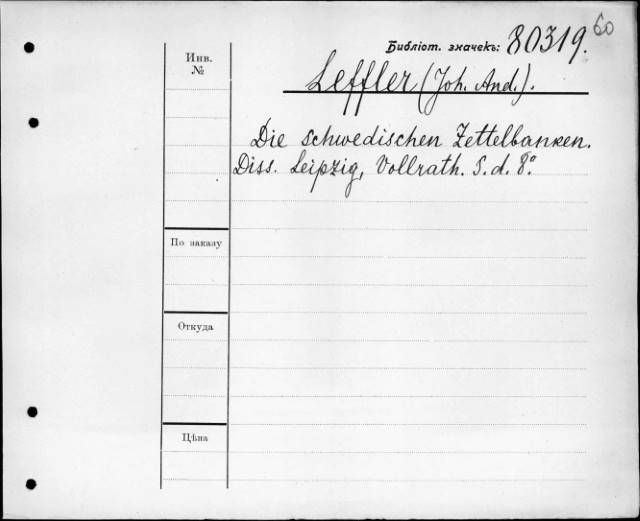 60
Библіот. значекъ: 80319.
Инв.
№
Leffler (Joh. And.).
Die schwedischen Zettelbanken.
Diss. Leipzig, Vollrath. S. d. 8°.
По заказу
Откуда
Цѣна